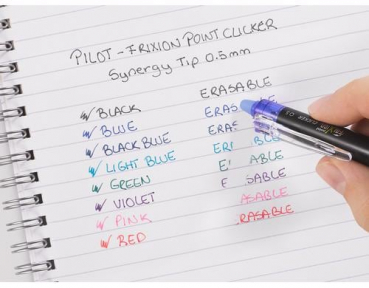 PILOT - FRIXION POINT CLICKER
Synergy Tip 0.5mm
ERASABLE
BLACK
BLUE
BLACK BLUE
LIGHT BLUE
GREEN
VIOLET
PINK
RED
ERAS
ERAS
ERA BLE
E ABLE
E SABLE
ASABLE
RASABLE